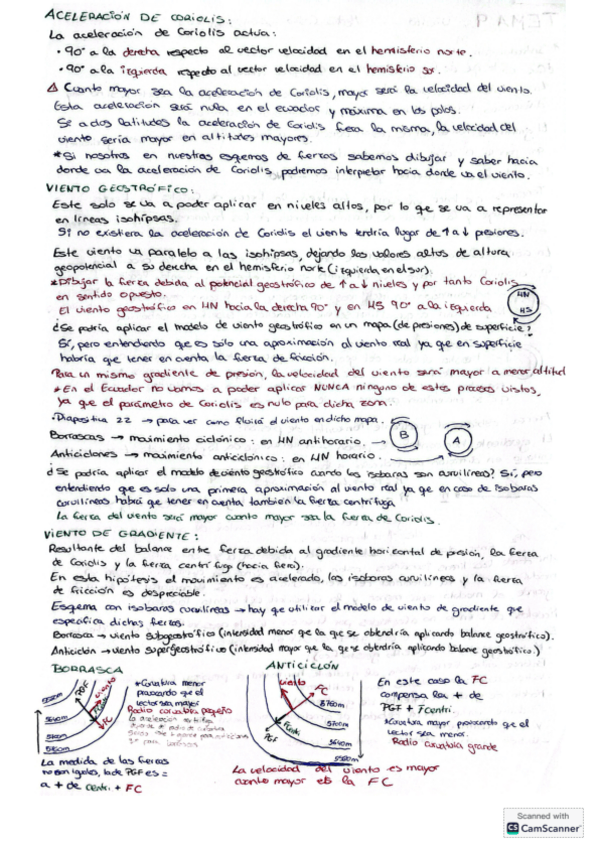 ACELERACIÓN DE CORIOLIS:
La aceleración de Coriolis actúa:
• 90° a la derecha respecto al vector velocidad en el hemisferio norte.
• 90° a la izquierda respecto al vector velocidad en el hemisferio sur.
⚠ Cuanto mayor sea la aceleración de Coriolis, mayor será la velocidad del viento.
Esta aceleración será nula en el ecuador y máxima en los polos.
Si a dos latitudes la aceleración de Coriolis fuese la misma, la velocidad del
viento sería mayor en altitudes mayores.
* Si nosotros en nuestros esquemas de fuerzas sabemos dibujar y saber hacia
donde va la aceleración de Coriolis, podremos interpretar hacia donde va el viento.
VIENTO GEOSTRÓFICO:
Este solo se va a poder aplicar en niveles altos, por lo que se va a representar
en líneas isohipsas.
Si no existiera la aceleración de Coriolis el viento tendría lugar de ↑ a ↓ presiones.
Este viento va paralelo a las isohipsas, dejando los valores altos de altura
geopotencial a su derecha en el hemisferio norte (izquierda en el sur).
* Dibujar la fuerza debida al potencial geostrófico de ↑ a ↓ niveles y por tanto Coriolis
en sentido opuesto.
HN
El viento geostrófico en HN hacia la derecha 90° y en HS 90° a la izquierda
HS
¿Se podría aplicar el modelo de viento geostrófico en un mapa (de presiones) de superficie?
Sí, pero entendiendo que es solo una aproximación al viento real ya que en superficie
habría que tener en cuenta la fuerza de fricción.
Para un mismo gradiente de presión, la velocidad del viento será mayor a menor altitud
* En el Ecuador no vamos a poder aplicar NUNCA ninguno de estos procesos vistos,
ya que el parámetro de Coriolis es nulo para dicha zona.
• Diapositiva 22 → para ver como fluirá el viento en dicho mapa.
Borrascas → movimiento ciclónico: en HN antihorario. → B
A
Anticiclones → movimiento anticiclónico: en HN horario.
¿Se podría aplicar el modelo de viento geostrófico cuando las isobaras son curvilíneas? Sí, pero
entendiendo que es solo una primera aproximación al viento real ya que en caso de isobaras
curvilíneas habrá que tener en cuenta también la fuerza centrífuga
La fuerza del viento será mayor cuanto mayor sea la fuerza de Coriolis.
VIENTO DE GRADIENTE:
Resultante del balance entre fuerza debida al gradiente horizontal de presión, la fuerza
de Coriolis y la fuerza centrífuga (hacia fuera).
En esta hipótesis el movimiento es acelerado, las isobaras curvilíneas y la fuerza
de fricción es despreciable.
Esquema con isobaras curvilíneas → hay que utilizar el modelo de viento de gradiente que
especifica dichas fuerzas.
Borrasca → viento subgeostrófico (intensidad menor que la que se obtendría aplicando balance geostrófico).
Anticiclón → viento supergeostrófico (intensidad mayor que la que se obtendría aplicando balance geostrófico.)
BORRASCA
PGF
viento
FC
5640m
* Curvatura menor
provocando que el
vector sea mayor
Radio curvatura pequeño
La medida de las fuerzas
no son iguales, la de PGF es =
a + de centri + FC
ANTICICLÓN
viento
FC
Fcentri
PGF
5760m
5700m
5640m
5580m
La velocidad del viento es mayor
cuanto mayor es la FC
En este caso la FC
compensa las + de
PGF + Fcentri.
* Curvatura mayor provocando que el
vector sea menor.
Radio curvatura grande
Scanned with
CS CamScanner